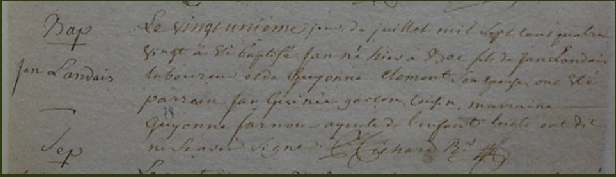 Bap
Jan Landais
Le vingt unième jour de juillet mil sept cent quatre
vingt à été baptisé Jan né hier a fils de Jan Landais
laboureur et de Guyonne Clement son epouse, ont été
parrain Jan garçon, cousin, marraine
Guyonne ayeule de l'enfant lesquels ont dit
ne sçavoir signer
Sep